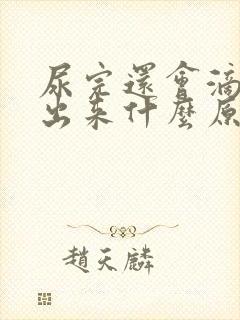 尿完還會滴
出來什麼原
趙天麟